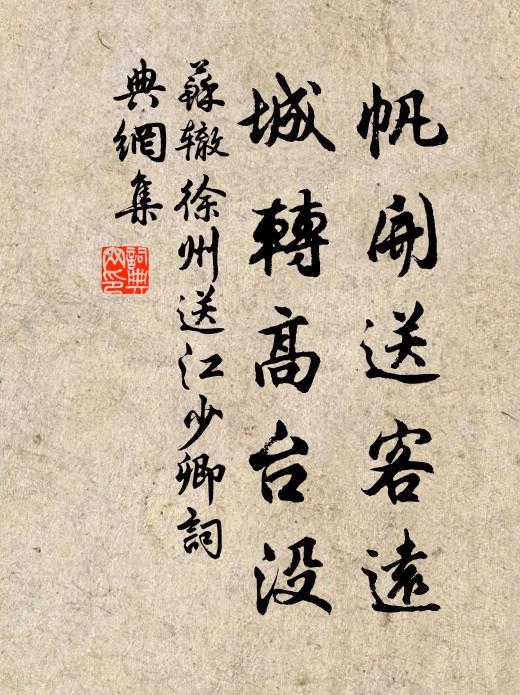 帆開送客遠
城轉高台没
蘇轍徐州送江少卿詞
典網集
詞典
网印